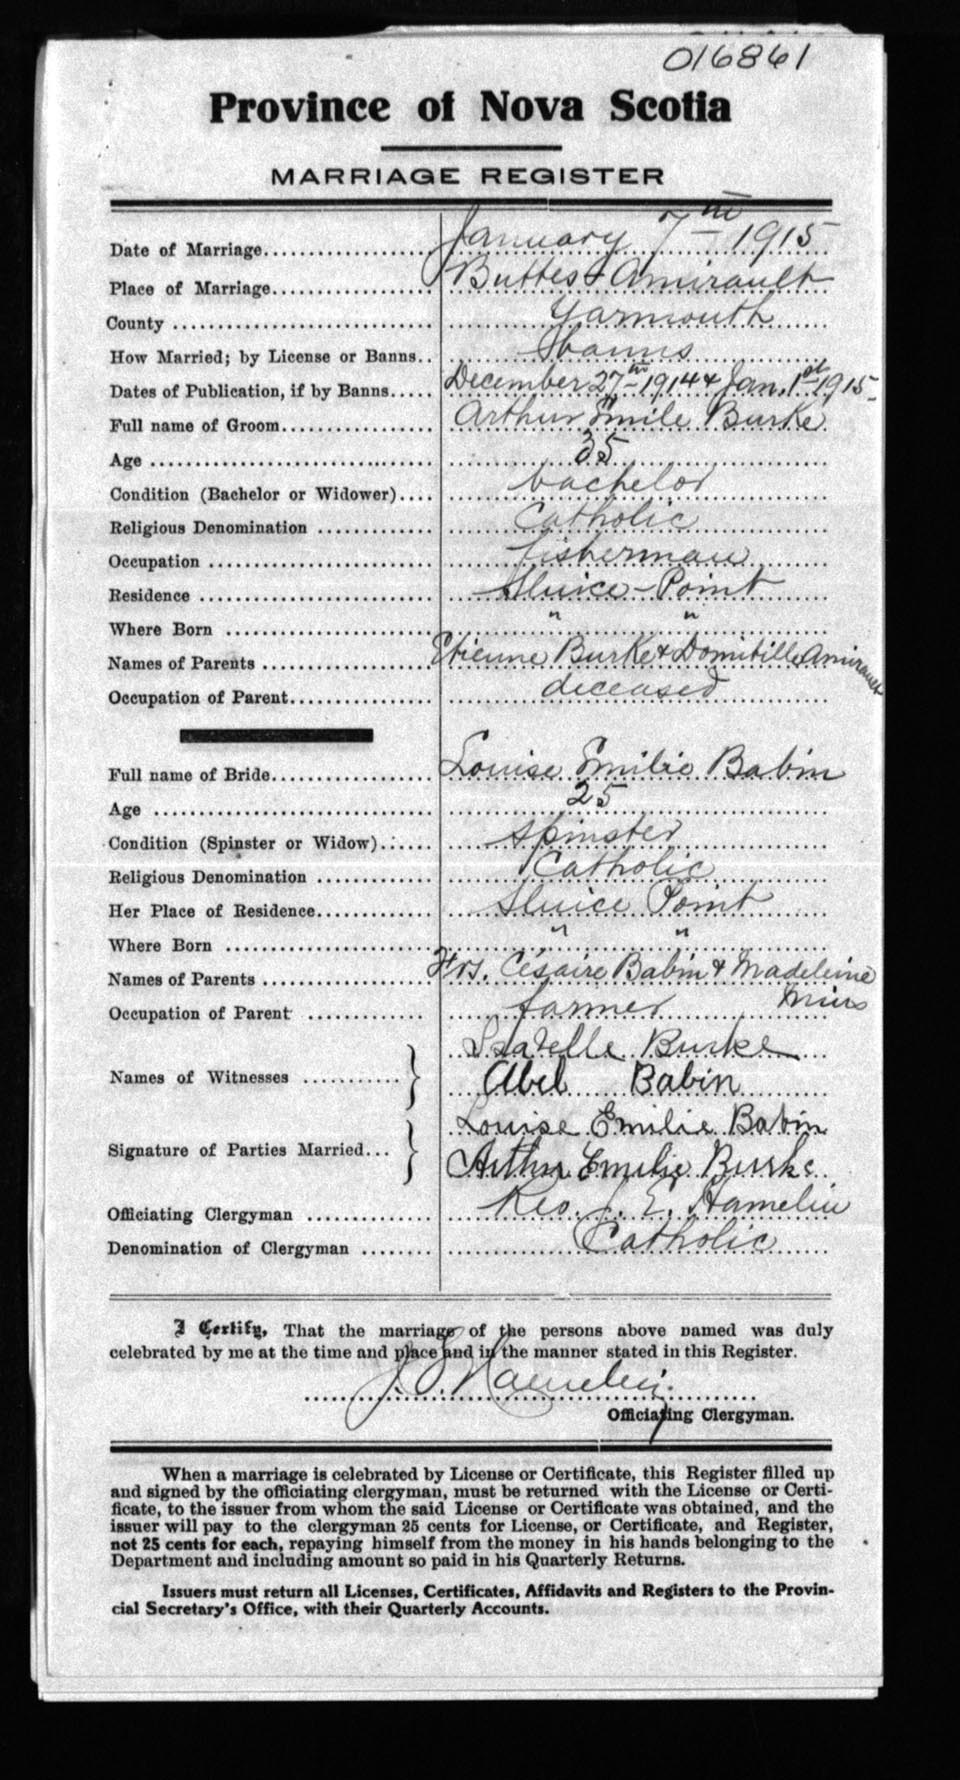 016861
Province of Nova Scotia
MARRIAGE REGISTER
Date of Marriage.................... January 7th 1915
Place of Marriage................... Buttes-Amirault
County .............................. Yarmouth
How Married; by License or Banns.. Banns
Dates of Publication, if by Banns..... December 27th 1914 & Jan. 1st 1915
Full name of Groom.................. Arthur Emile Burke
Age ................................. 35
Condition (Bachelor or Widower).... bachelor
Religious Denomination .............. Catholic
Occupation .......................... fisherman
Residence ........................... Sluice-Point
Where Born ......................... " "
Names of Parents .................... Etienne Burke & Domitille Amirault
Occupation of Parent................. deceased
Full name of Bride................... Louise Emilie Babin
Age ................................. 25
Condition (Spinster or Widow)....... spinster
Religious Denomination .............. Catholic
Her Place of Residence.............. Sluice Point
Where Born ......................... " "
Names of Parents .................... Frs. Césaire Babin & Madeleine
Mius
Occupation of Parent ............... farmer
Isabelle Burke
Names of Witnesses ........... Abel Babin
Louise Emilie Babin
Signature of Parties Married... Arthur Emilie Burke
Officiating Clergyman ............... Rev. J. E. Hamelin
Denomination of Clergyman ........ Catholic
I Certify, That the marriage of the persons above named was duly
celebrated by me at the time and place and in the manner stated in this Register.
J. E. Hamelin
Officiating Clergyman.
When a marriage is celebrated by License or Certificate, this Register filled up
and signed by the officiating clergyman, must be returned with the License or Certi-
ficate, to the issuer from whom the said License or Certificate was obtained, and the
issuer will pay to the clergyman 25 cents for License, or Certificate, and Register,
not 25 cents for each, repaying himself from the money in his hands belonging to the
Department and including amount so paid in his Quarterly Returns.
Issuers must return all Licenses, Certificates, Affidavits and Registers to the Provin-
cial Secretary's Office, with their Quarterly Accounts.